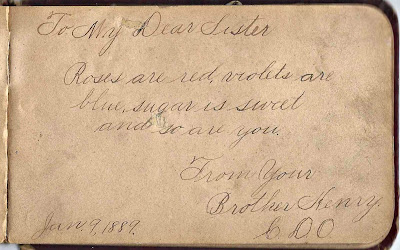 To My Dear Sister
Roses are red, violets are
blue, sugar is sweet
and so are you.
From Your
Brother Henry.
C D O
Jan. 9, 1889.